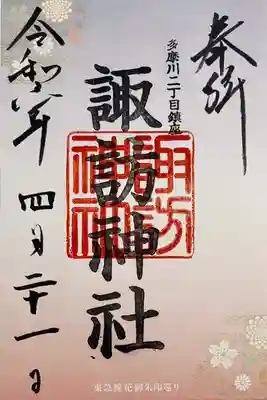 奉拝
多摩川二丁目鎮座
諏訪神社
諏訪神社
令和八年 四月二十一日
東急線花御朱印巡り